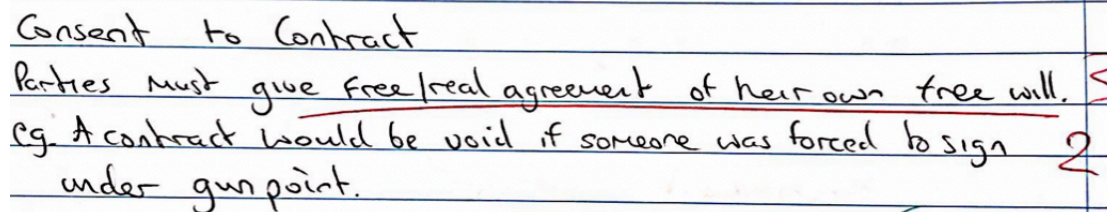 Consent to Contract
Parties must give free/real agreement of their own free will.
eg. A contract would be void if someone was forced to sign 2
under gunpoint.